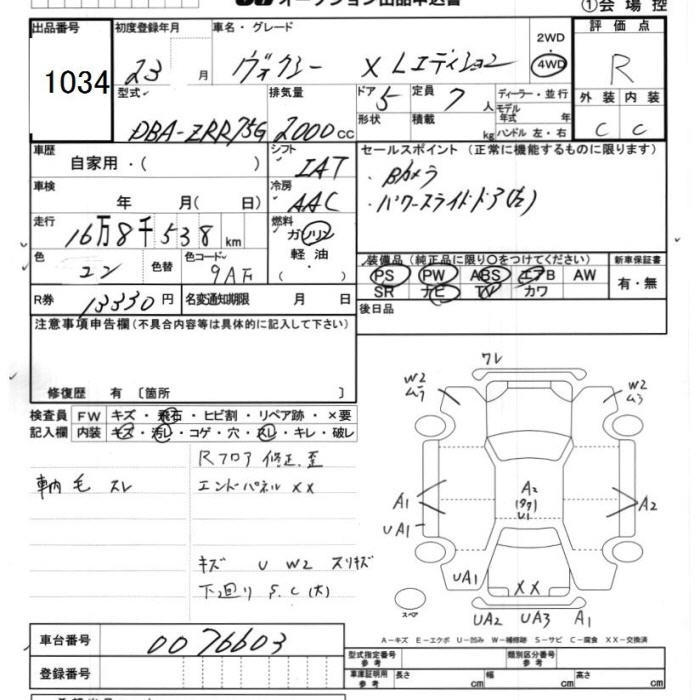 オークション出品申込書
①会場控
出品番号 初度登録年月 車名・グレード 2WD・4WD 評価点
1034 23 月 ヴォクシー X Lエディション R
型式 排気量 ドア 5 定員 7人 ディーラー・並行 外装 内装
DBA-ZRR75G 2000cc 形状 積載 kg モデル年式 年 ハンドル 左・右 C C
車歴 シフト セールスポイント (正常に機能するものに限ります)
自家用・( ) IAT
・Bカメラ
車検 冷房 ・パワースライドドア(左)
年 月( 日) AAC
走行 燃料
16万8千538km ガソリン
軽油
装備品(純正品に限り〇をつけてください) 新車保証書
色 コン 色替 色コード ( )
PS PW ABS エアB AW 有・無
SR ナビ TV カワ
R券 13330円 名変通知期限 月 日
後日品
注意事項申告欄(不具合内容等は具体的に記入して下さい)
修復歴 有 〔箇所 〕
検査員 FW キズ・飛石・ヒビ割・リペア跡・×要
記入欄 内装 キズ・汚レ・コゲ・穴・スレ・キレ・破レ
Rフロア 修正、歪
車内 毛 スレ エンドパネル XX
キズ U W2 スリキズ
下廻り S.C(大)
ワレ
W2
W2
ム3
A1
UA1
A2
U1
A2
UA1
XX
スペア
UA2 UA3 A1
A-キズ E-エクボ U-凹み W-補修跡 S-サビ C-腐食 XX-交換済
車台番号 0076603
型式指定番号 参考 類別区分番号 参考
登録番号
車庫証明用 参考 長さ cm 幅 cm 高さ cm